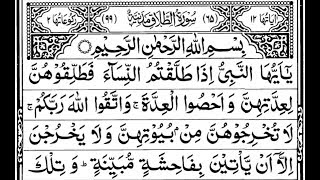 اٰيَاتُهَا ١٢ (٦٥) سُوْرَةُ الطَّلَاقِ مَدَنِيَّةٌ (٩٩) رُكُوْعَاتُهَا ٢
بِسْمِ اللهِ الرَّحْمٰنِ الرَّحِيْمِ
يٰۤاَيُّهَا النَّبِيُّ اِذَا طَلَّقْتُمُ النِّسَآءَ فَطَلِّقُوْهُنَّ
لِعِدَّتِهِنَّ وَاَحْصُوا الْعِدَّةَ ۚ وَاتَّقُوا اللهَ رَبَّكُمْ ۚ
لَا تُخْرِجُوْهُنَّ مِنْۢ بُيُوْتِهِنَّ وَلَا يَخْرُجْنَ
اِلَّاۤ اَنْ يَّاْتِيْنَ بِفَاحِشَةٍ مُّبَيِّنَةٍ ؕ وَتِلْكَ